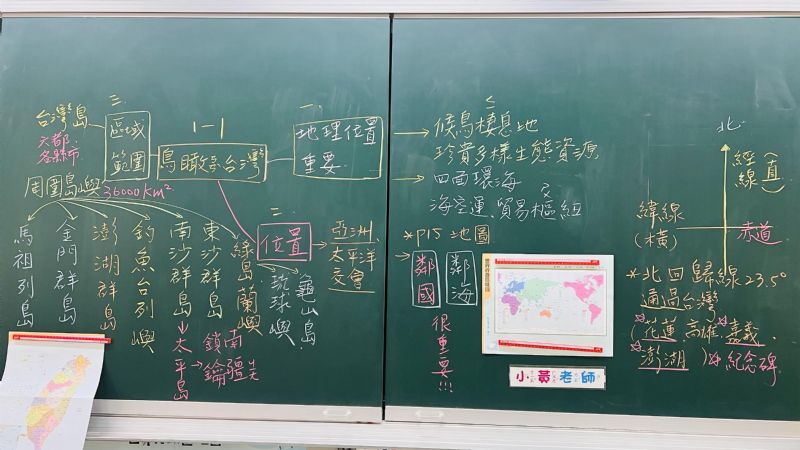 台灣島
六都
各縣市
三
區域
範圍
周圍島嶼
36000km²
馬祖列島
金門群島
澎湖群島
釣魚台列嶼
南沙群島
太平島
鎖鑰
南疆
東沙群島
綠島
蘭嶼
琉球嶼
龜山島
1-1
鳥瞰臺灣
一
地理位置
重要
二
位置
亞洲
太平洋
交會
候鳥棲息地
珍貴多樣生態資源
四面環海
海空運、貿易樞紐
*P15 地圖
鄰國
鄰海
很重要!!!
小黃老師
北
經線(直)
緯線
(橫)
赤道
*北回歸線23.5°
通過台灣
(花蓮、高雄、嘉義、
澎湖)
紀念碑